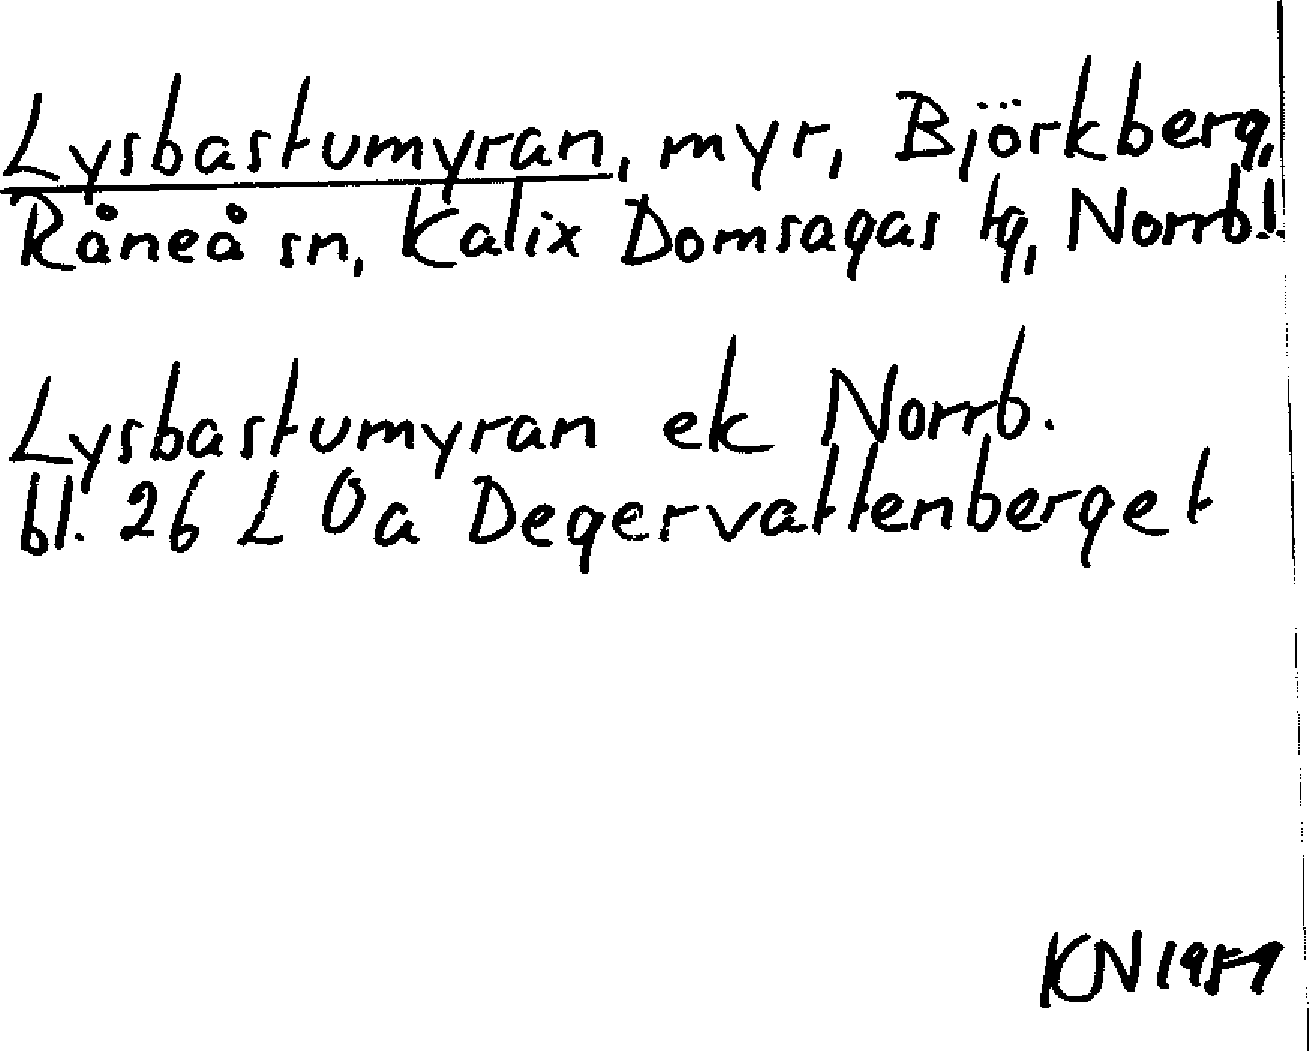 Lysbastumyran, myr, Björkberg,
Råneå sn, Kalix Domsagas tg, Norrb.l.
Lysbastumyran ek Norrb.
bl. 26 L 0a Degervattenberget
KN